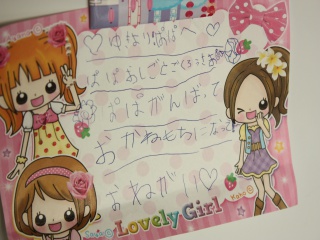 ♡ゆなりぱぱへ♡
ぱぱおしごとごくろうさま
ぱぱがんばって
おかねもちになって
おねがい♡
Lovely Girl